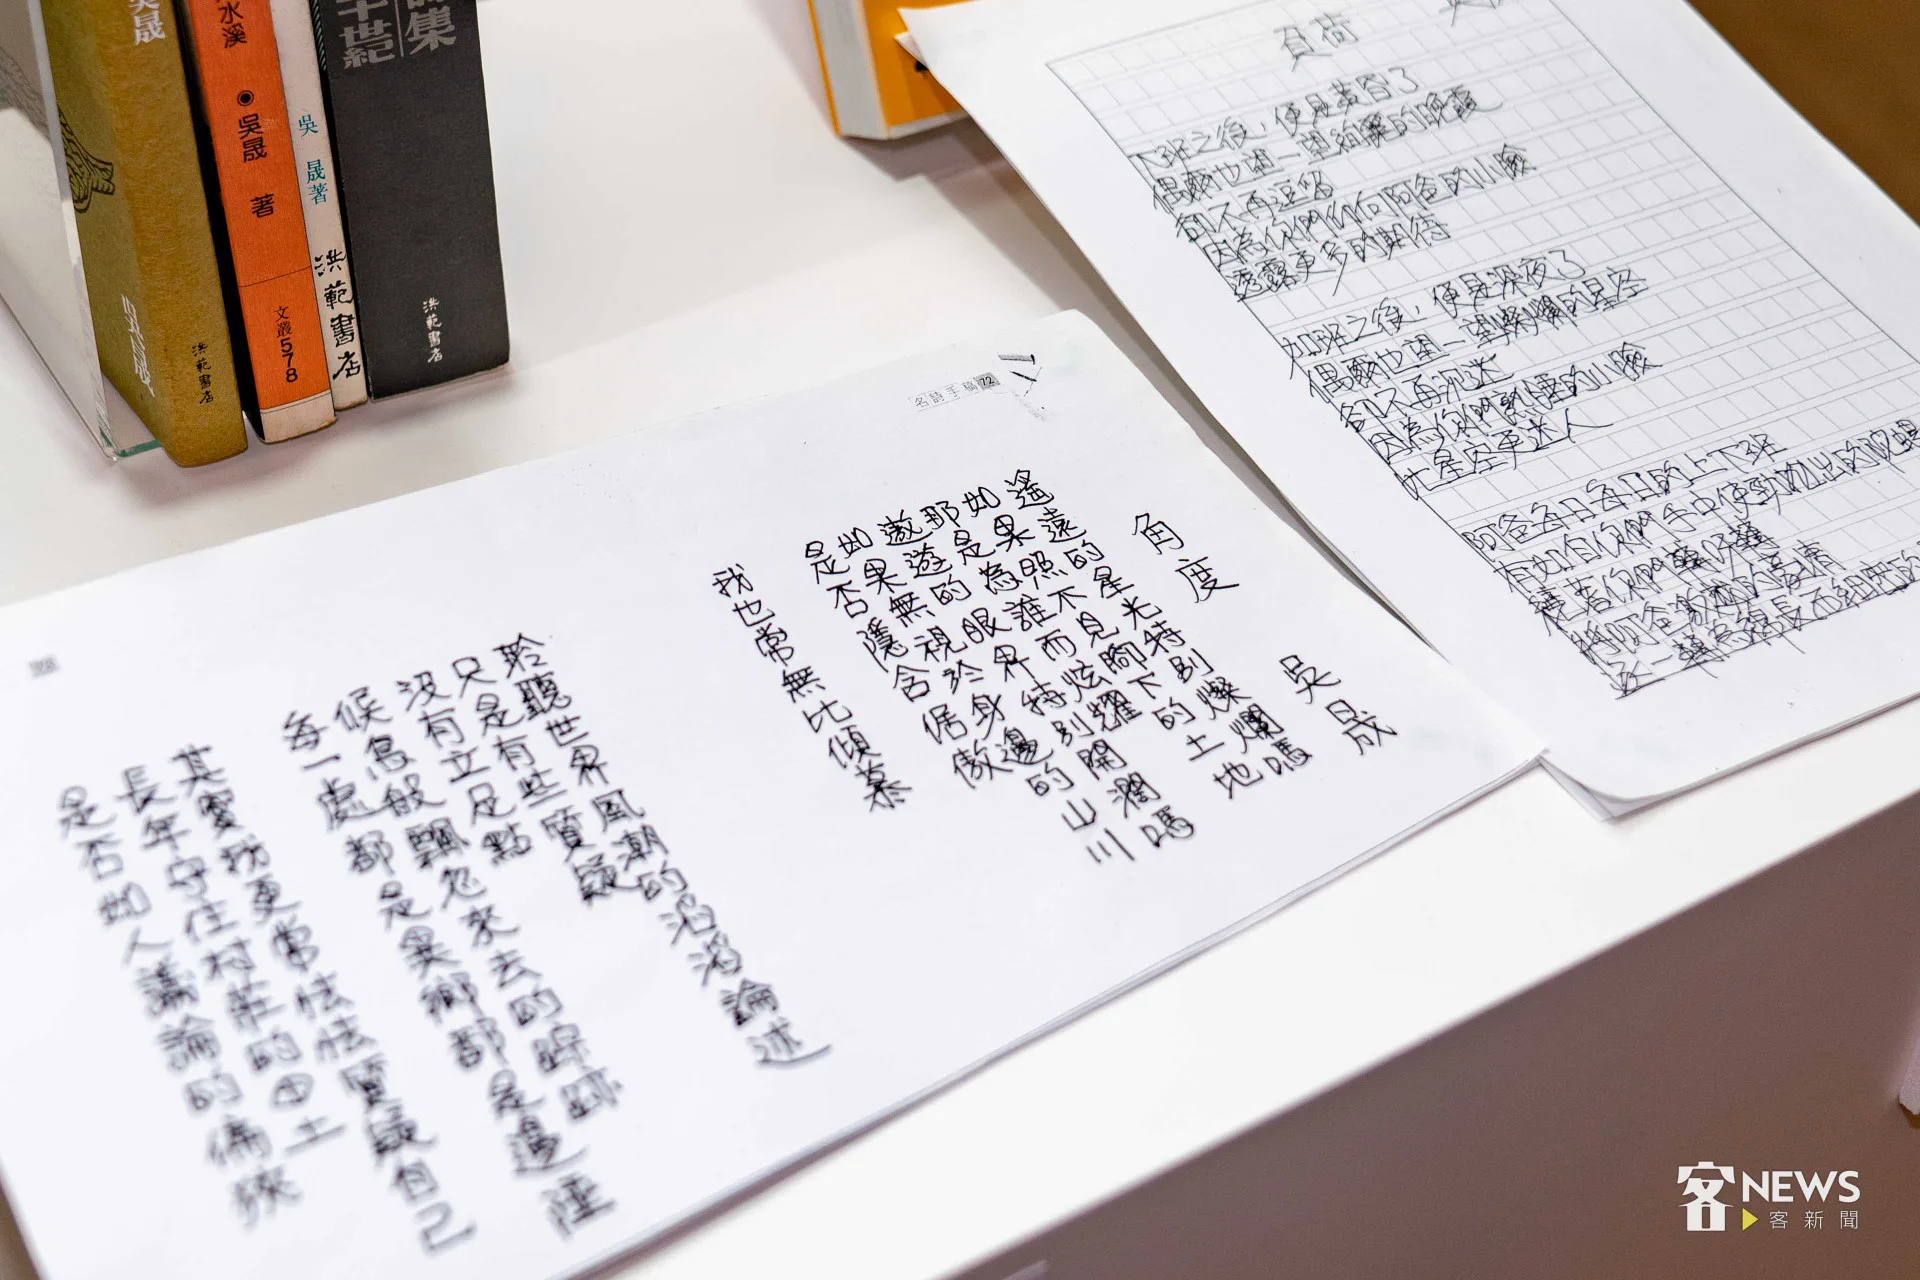 吳晟
吳晟
洪範書店
水溪 ◉ 吳晟 著
文叢578
吳晟著
洪範書店
半世紀
詩集
洪範書店
負荷
下班之後,便是黃昏了
偶爾也望一望絢麗的晚霞
卻不再逗留
因為你們仰向阿爸的小臉
透露更多的期待
加班之後,便是深夜了
偶爾也望一望燦爛的星空
卻不再沉迷
因為你們熟睡的小臉
比星空更迷人
阿爸每日每日的上下班
有如你們手中使勁拋出的陀螺
繞著你們轉呀轉
將阿爸激越的豪情
逐一轉為綿長而細密的
名詩手稿 72
角度 吳晟
遙遠的星光特別燦爛嗎
如果照不見腳下的土地
那是為誰而炫耀
遨遊的眼界特別開闊嗎
如果無視於身邊的山川
是否隱含倨傲
我也常無比傾慕
聆聽世界風潮的滔滔論述
只是有些質疑
沒有立足點
候鳥般飄忽來去的蹤跡
每一處都是異鄉都是邊陲
其實我更常怯怯質疑自己
長年守住村莊的田土
是否如人議論的偏狹
客NEWS
客新聞